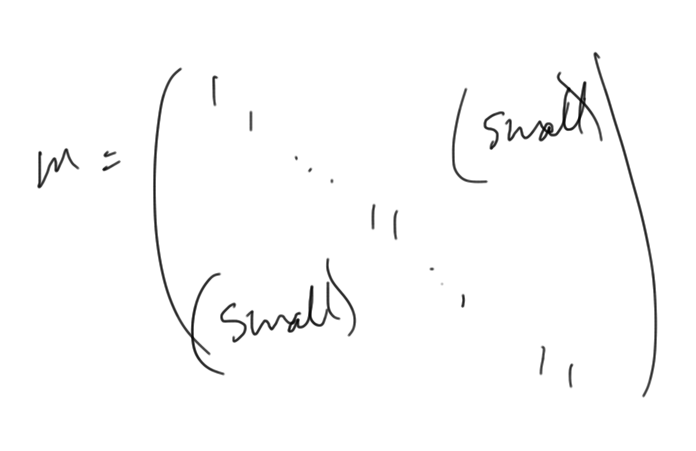 m = ( 1
1 (small)
⋱
1 1
⋱
(small) 1
1 1 )